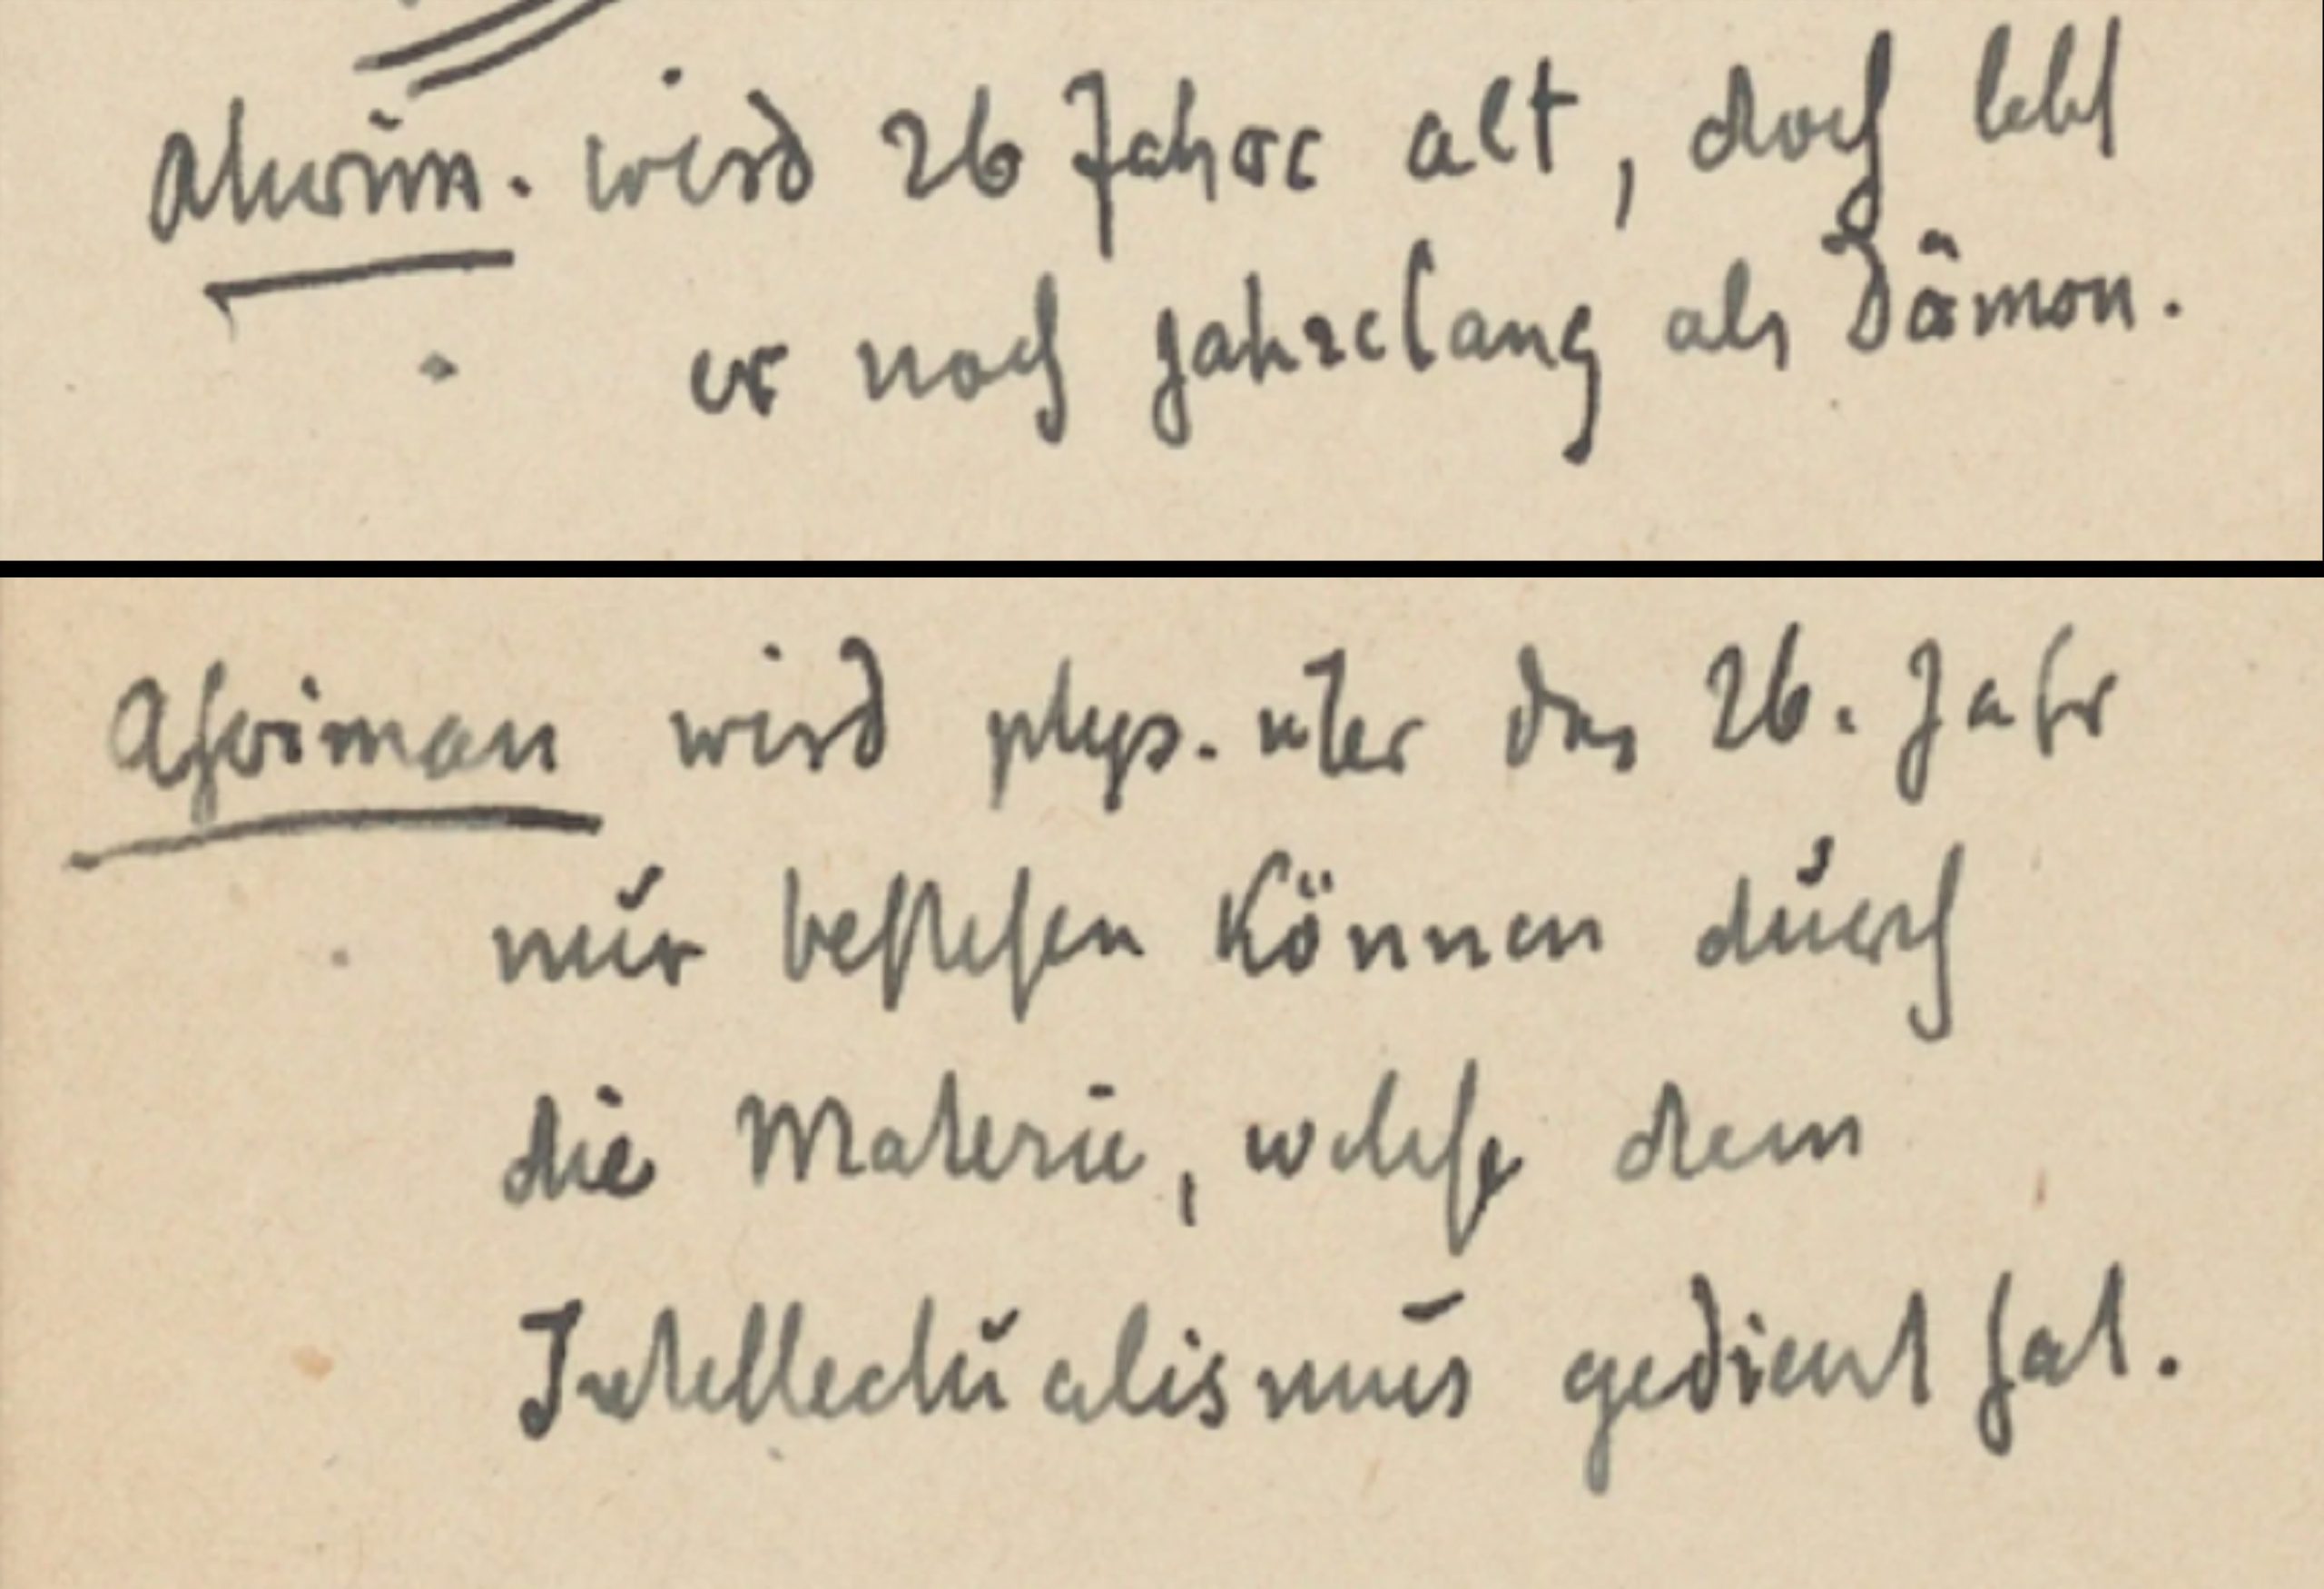 Alwin. wird 26 Jahre alt, doch lebt
er noch jahrelang als Dämon.
Ahriman wird phys. über das 26. Jahr
nur bestehen können durch
die Materie, welche dem
Intellectualismus gedient hat.